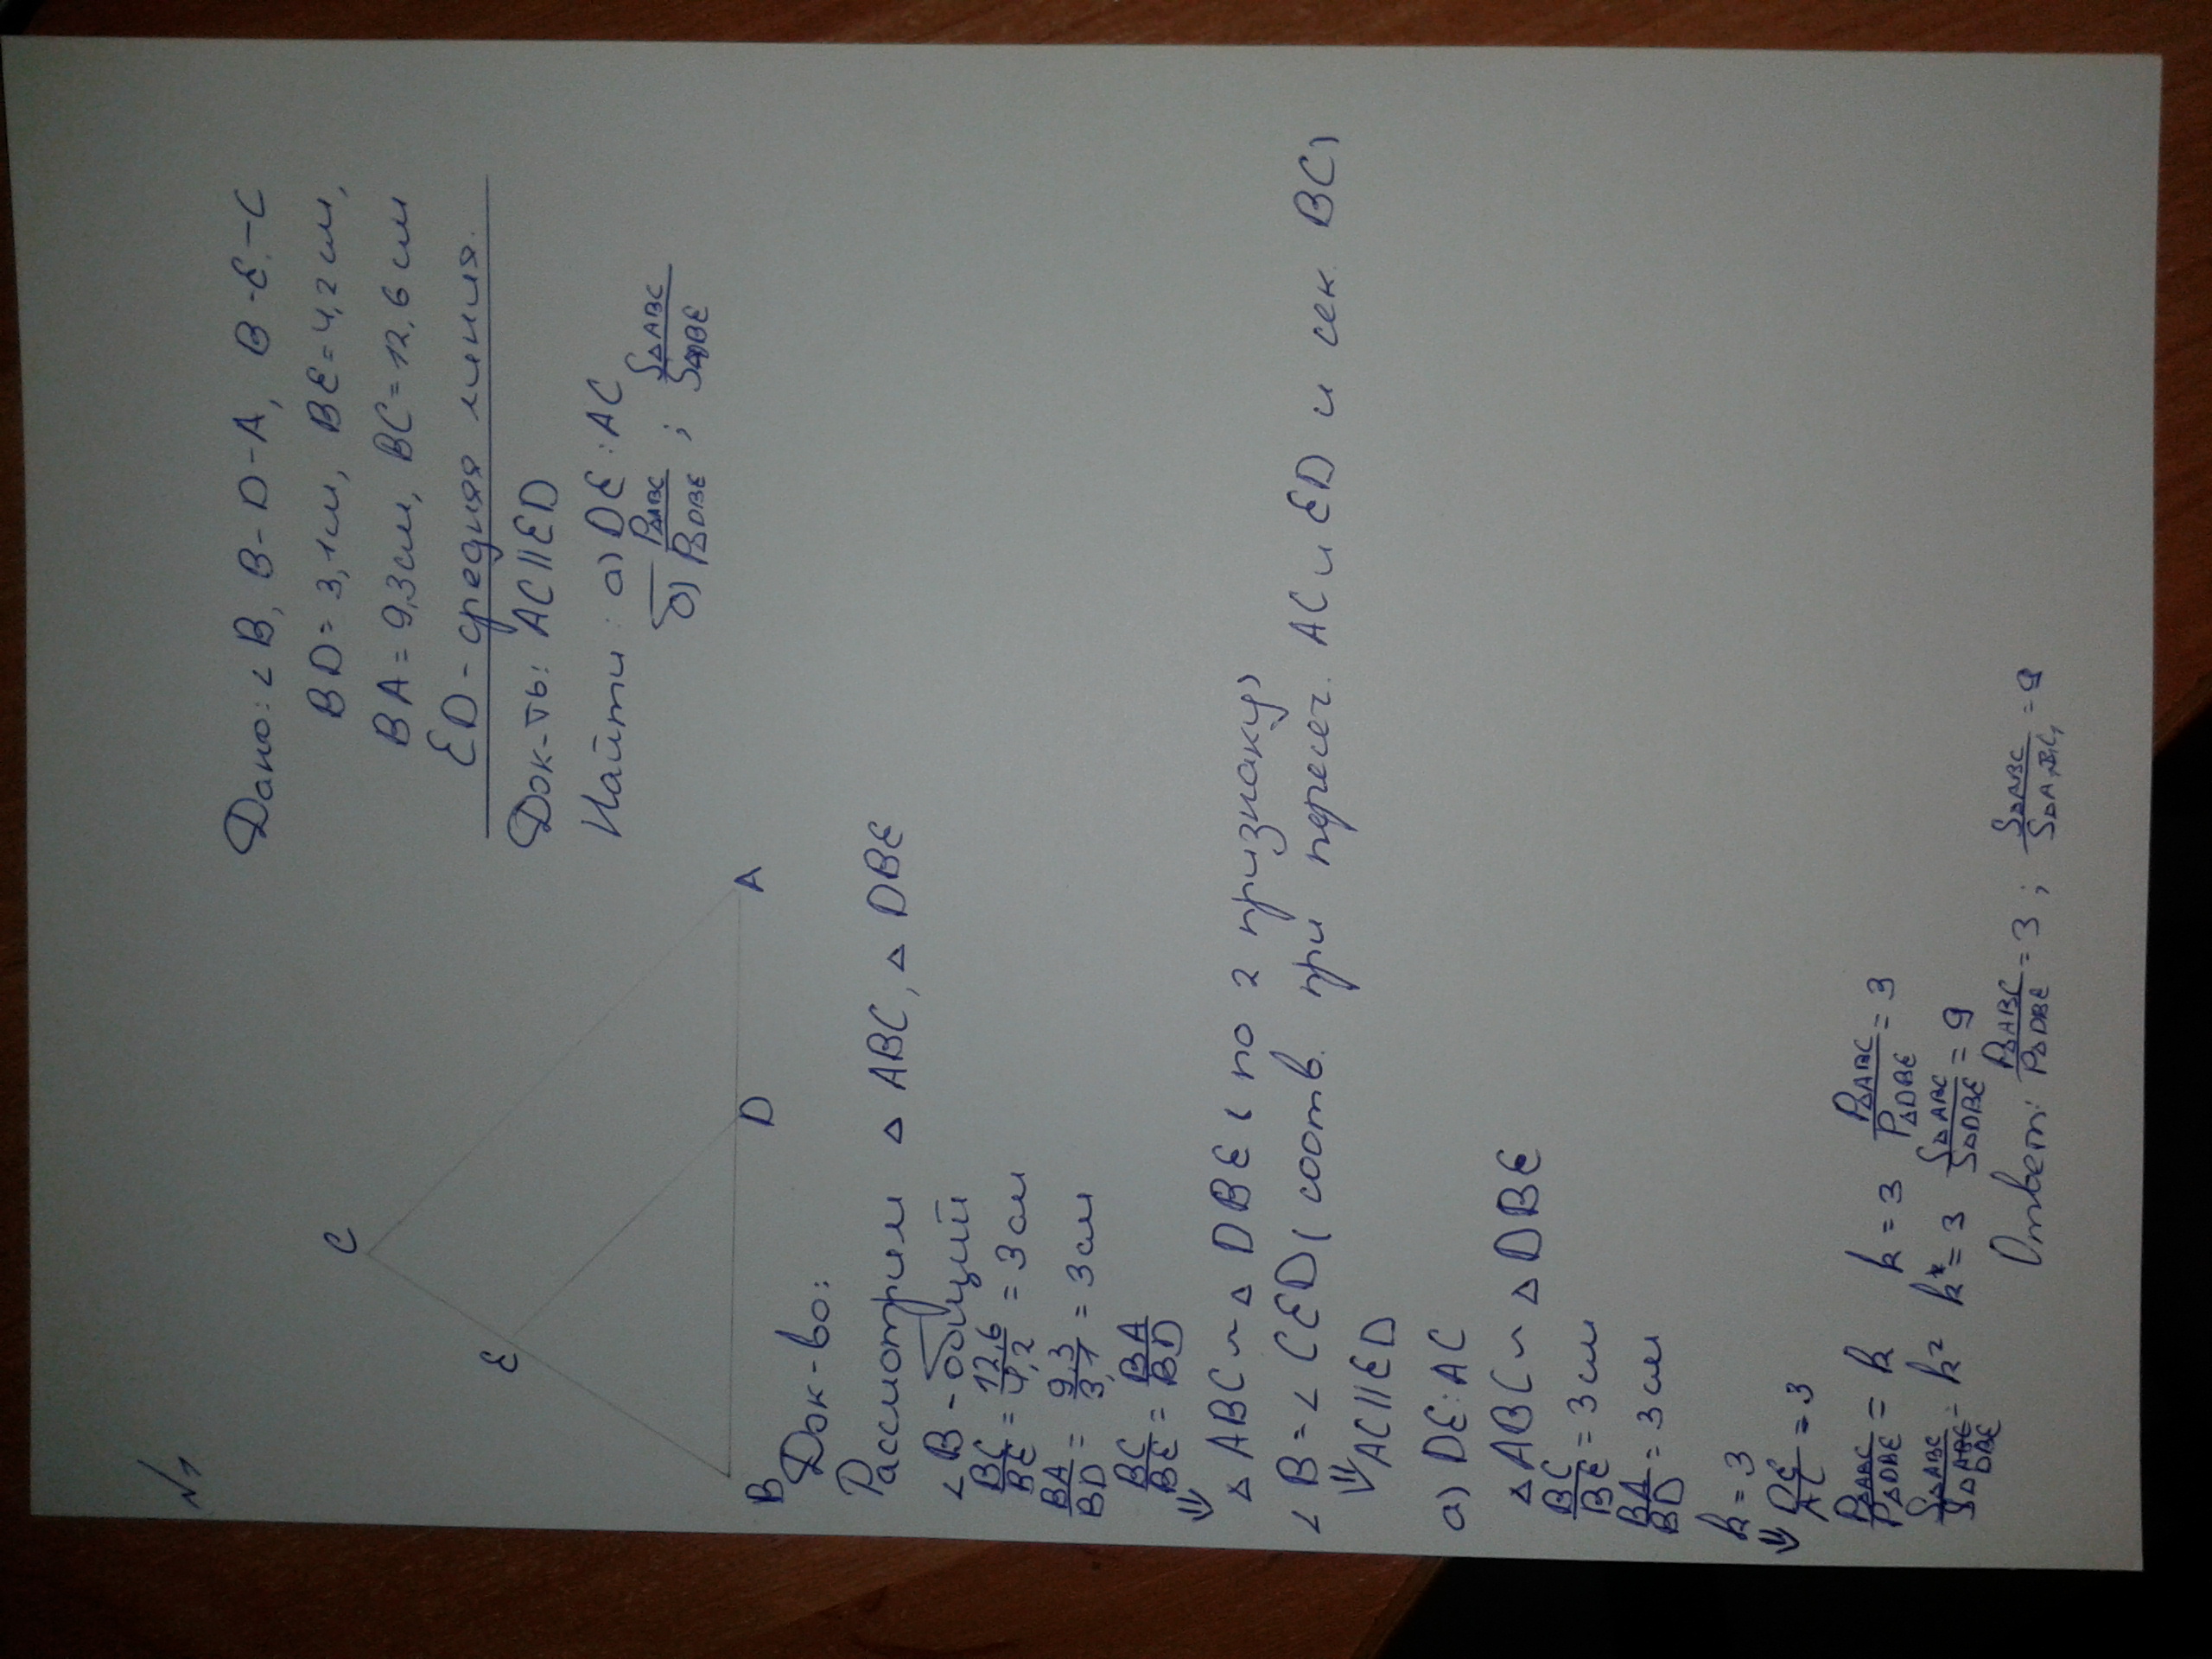 №1
C
E
B
D
A
Дано: ∠B, B-D-A, B-E-C
BD = 3,1см, BE = 4,2 см,
BA = 9,3см, BC = 12,6 см
ED - средняя линия.
Док-ть: AC||ED
Найти: а) DE : AC
б) P△ABC/P△DBE ; S△ABC/S△DBE
Док-во:
Рассмотрим △ ABC, △ DBE
∠B - общий
BC/BE = 12,6/4,2 = 3 см
BA/BD = 9,3/3,1 = 3 см
BC/BE = BA/BD
⇓
△ ABC ~ △ DBE ( по 2 признаку)
∠ B = ∠ CED ( соотв. при пересеч. AC и ED и сек. BC)
⇓ AC||ED
а) DE : AC
△ ABC ~ △ DBE
BC/BE = 3 см
BA/BD = 3 см
k = 3
⇓ DE/AC = 3
P△ABC/P△DBE = k k = 3 P△ABC/P△DBE = 3
S△ABC/S△DBE = k² k² = 3 S△ABC/S△DBE = 9
Ответ: P△ABC/P△DBE = 3 ; S△ABC/S△A₁B₁C₁ = 9